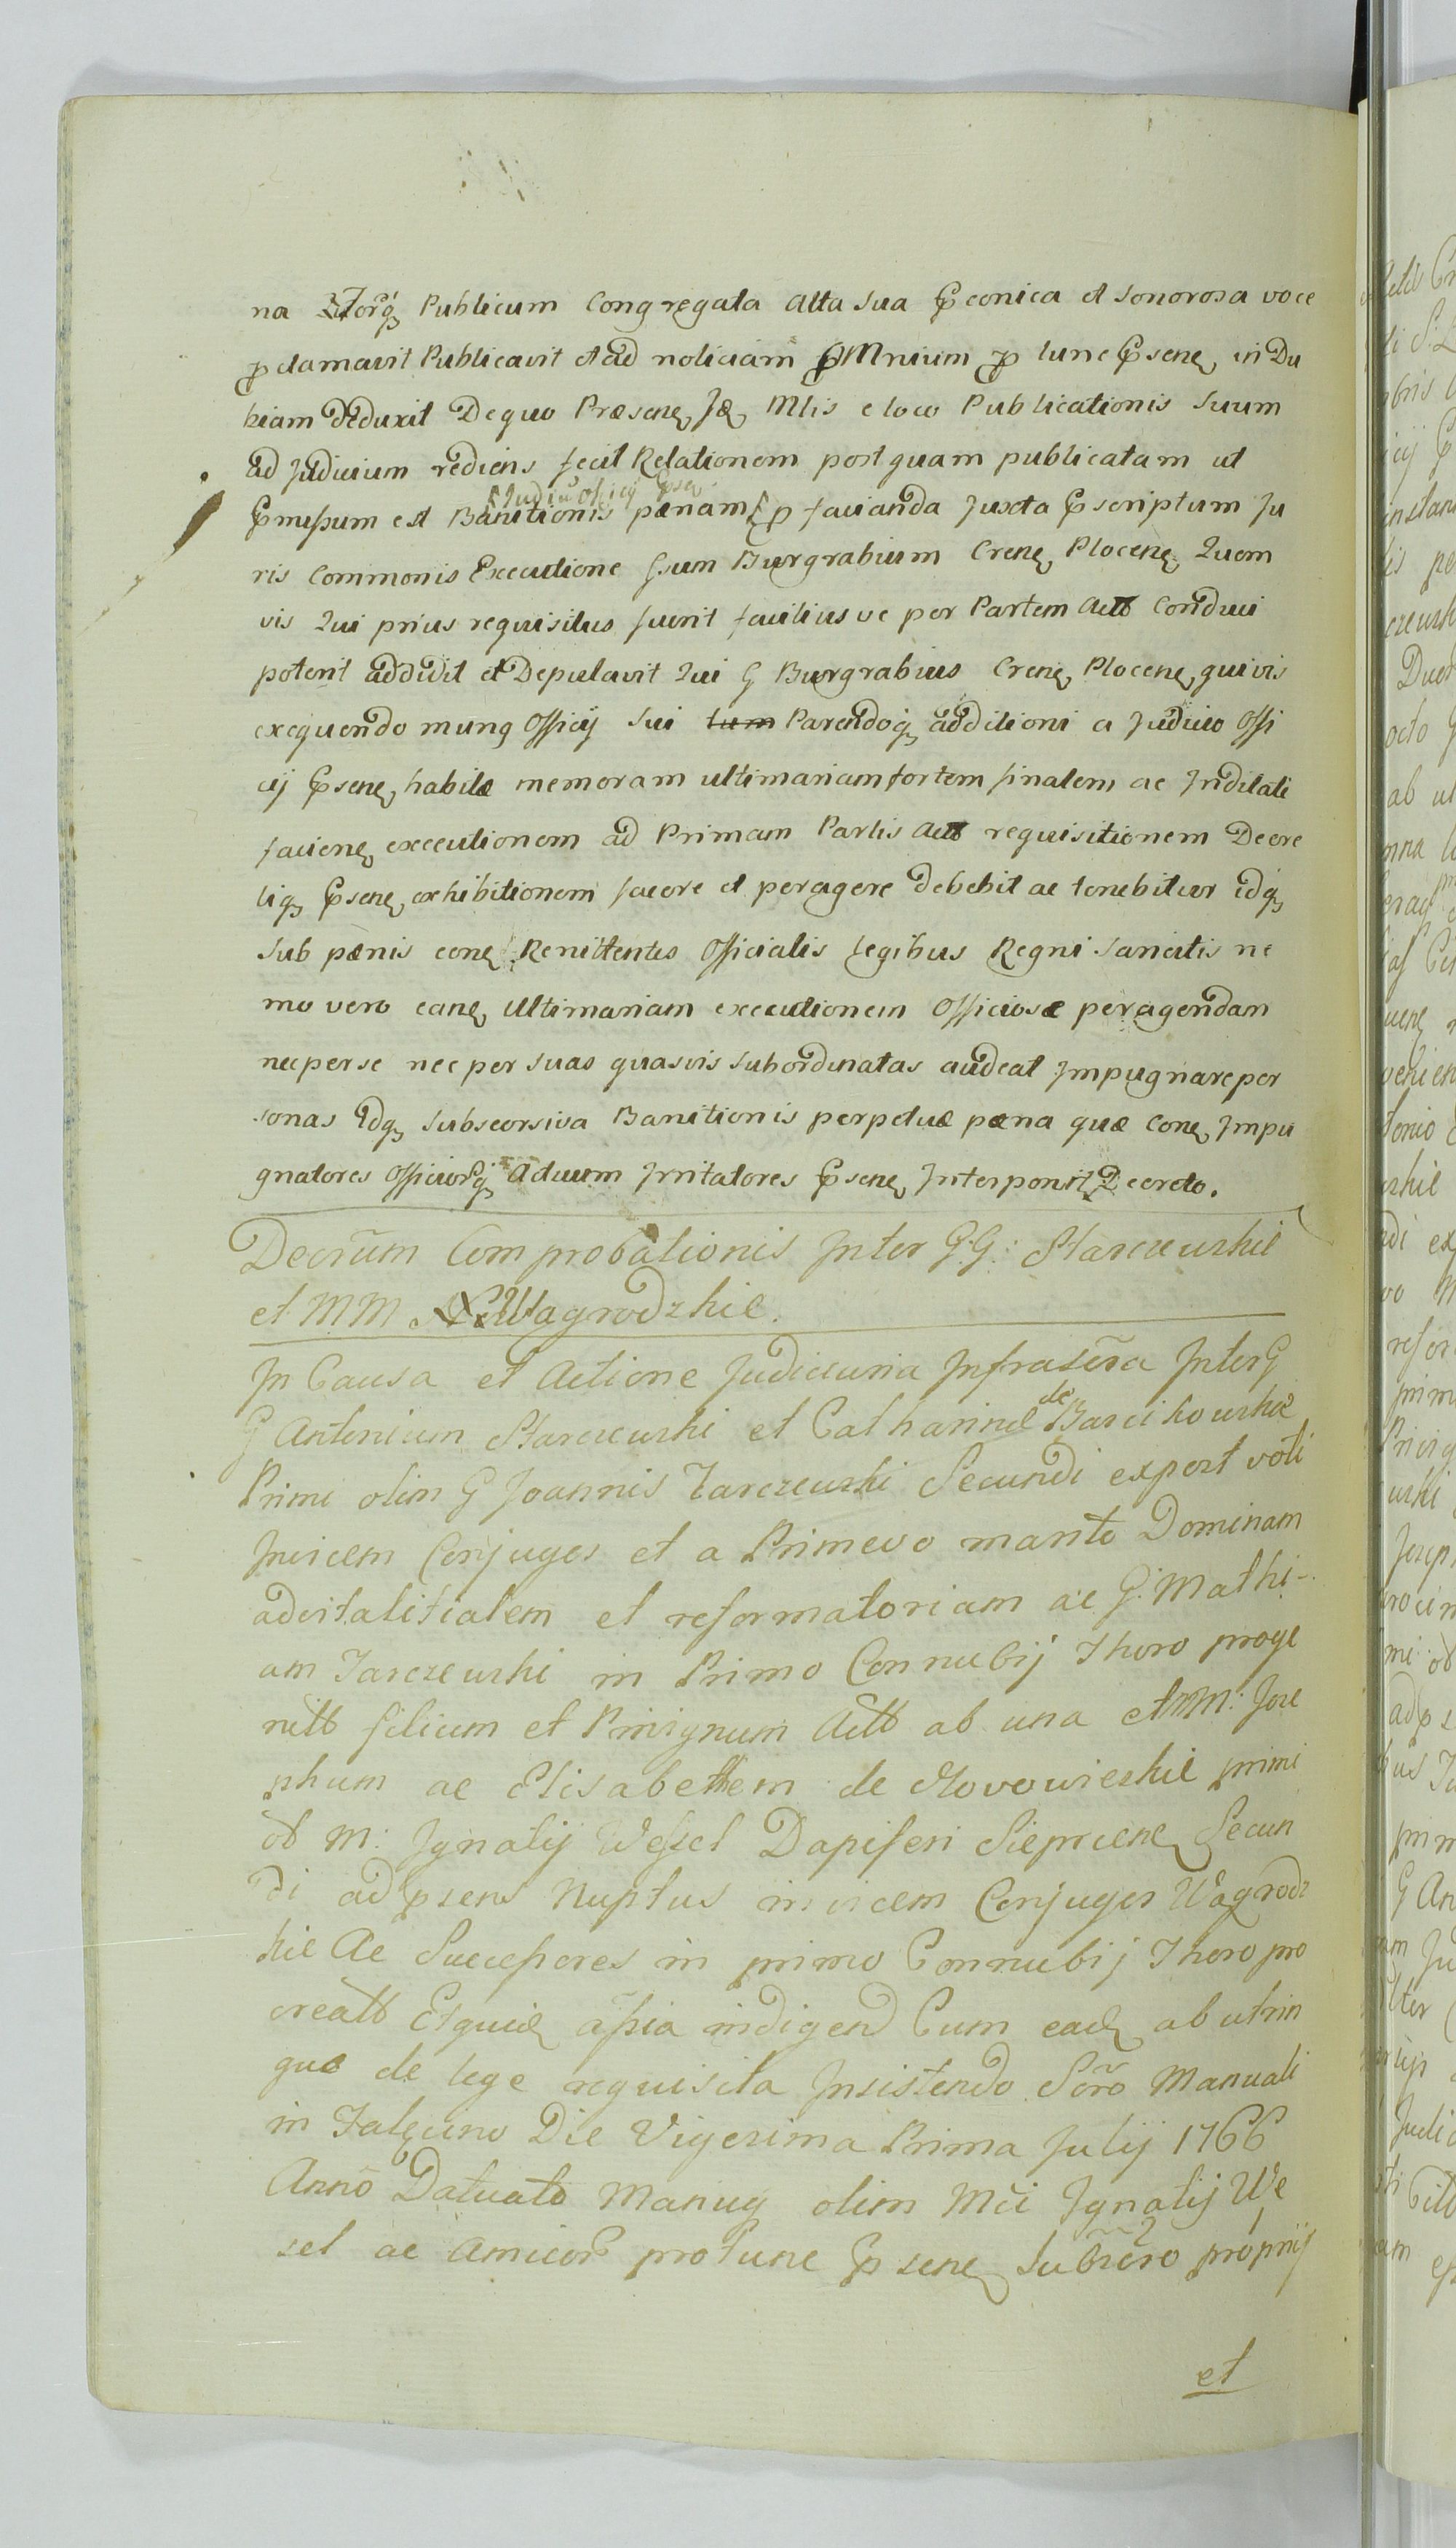 na Forq Publicum Congregata alta sua Pconica et sonorosa voce
pclamavit Publicavit et ad noticiam oMnium p tunc Psene in Du
biam deduxit De quo Præsene Je Mlis e loco Publicationis suum
ad Judicium rediens fecit Relationem postquam publicatam ut
Judiu Officij Psen
Pmissum est Banitionis pænam p facianda Juxta Pscriptum Ju
ris Commonis Executione Gsum Burgrabium Crene Plocene Quem
vis Qui prius requisitus fuerit facilius ve per Partem Actt Conduci
poterit addidit et Deputavit Qui G Burgrabius Crene Plocene quivis
exequendo munq Officij sui tum Parendoq additioni a Judicio Offi
cij Psene habitæ memoram ultimariam fortem finalem ac Inditati
faciene executionem ad Primam Partis Actt requisitionem Decre
tiq Psene exhibitionem facere et peragere debebit ac tenebitur idq
sub pænis cone Renittentes Officialis legibus Regni sancitis ne
mo vero eane Ultimariam executionem Officiosæ peragendam
nec per se nec per suas quasvis subordinatas audeat Impugnare per
sonas idq subscorsiva Banitionis perpetuæ pæna quæ Cone Impu
gnatores Officiorq Actuum Irritatores Psene Interponit Decreto.
Decrum Comprobationis Inter G.G: Starczewskie
et MM Wagrodzkie.
In Causa et Actione Judiciaria Infrascra Inter G
G Antonium Starczewski et Catharinæ de Barcikowskie
Primi olim G Joannis Tarczewski Secundi expert voti
Invicem Conjuges et a Primevo marito Dominam
advitalitialem et reformatoriam ac G: Mathi-
am Tarczewski in Primo Connubij Thoro proge
nitt filium et Privignum Actt ab una et MM: Joze
phum ac Elisabethem de Nowowieskie primi
ol M: Ignatij Wessel Dapiferi Sieprcene Secun
di ad psens Nuptus invicem Conjuges Wagrodz
kie Ac Successores in primo Connubij Thoro pro
creatt Etquid assia indigend Cum eade ab utrin
que de lege requisita Insistendo Scro Manuali
in Die Vigesima Prima Julij 1766
Anno Datuato Manuq olim Mci Ignatij We
sel ac Amicor protunc Psene subscro proprijs
et